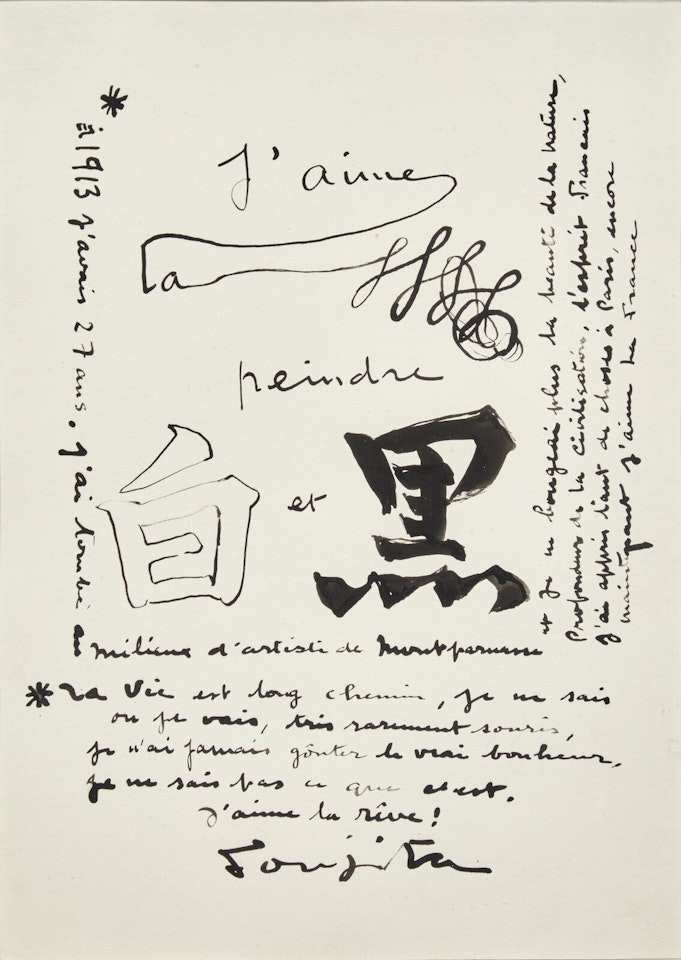 J'aime
la
peindre
白 et 黒
* à 1913 j'avais 27 ans. j'ai tombé
au milieux d'artiste de Montparnasse
et Je ne bougeai plus la beauté de la Nature,
Profondeur de la civilisation, L'esprit Français
J'ai appris tant de choses à Paris, encore
maintenant J'aime La France
* La Vie est long chemin, je ne sais
ou je vais, très rarement souris,
je n'ai jamais goûter le vrai bonheur,
je ne sais pas ce que c'est.
J'aime la rêve!
Foujita